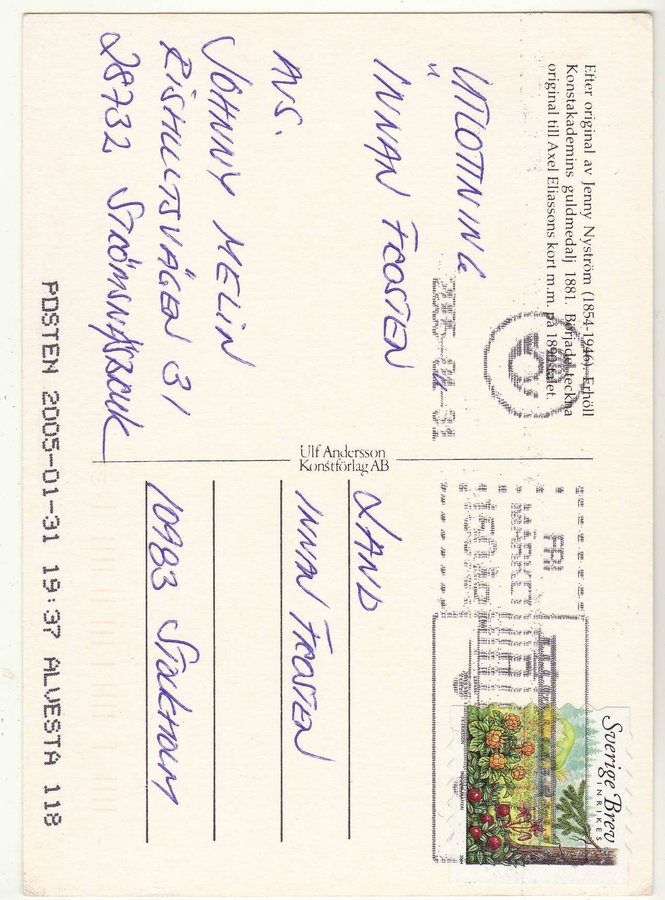 Efter original av Jenny Nyström (1854-1946). Erhöll
Konstakademins guldmedalj 1881. Började teckna
original till Axel Eliassons kort m.m. på 1890-talet.
UTLOTTNING
"
INNAN FROSTEN
AVS.
JOHNNY MELIN
RISHULTSVÄGEN 31
28732 STRÖMSNÄSBRUK
2005-01-31
Ulf Andersson
Konstförlag AB
LAND
INNAN FROSTEN
10983 STOCKHOLM
FRI
MÄRKET
Sverige Brev
INRIKES
POSTEN 2005-01-31 19:37 ALVESTA 118